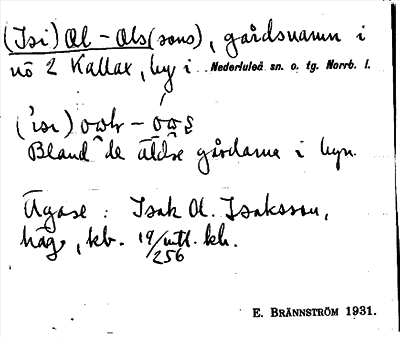 (Isi) Ol - Ols(sons), gårdsnamn i
nö 2 Kallax, by i Nederluleå sn. o. tg. Norrb. l.
Bland de äldre gårdarna i byn.
Ägare: Isak O. Isaksson,
häg, kb. 19/utl. kh.
256
E. BRÄNNSTRÖM 1931.